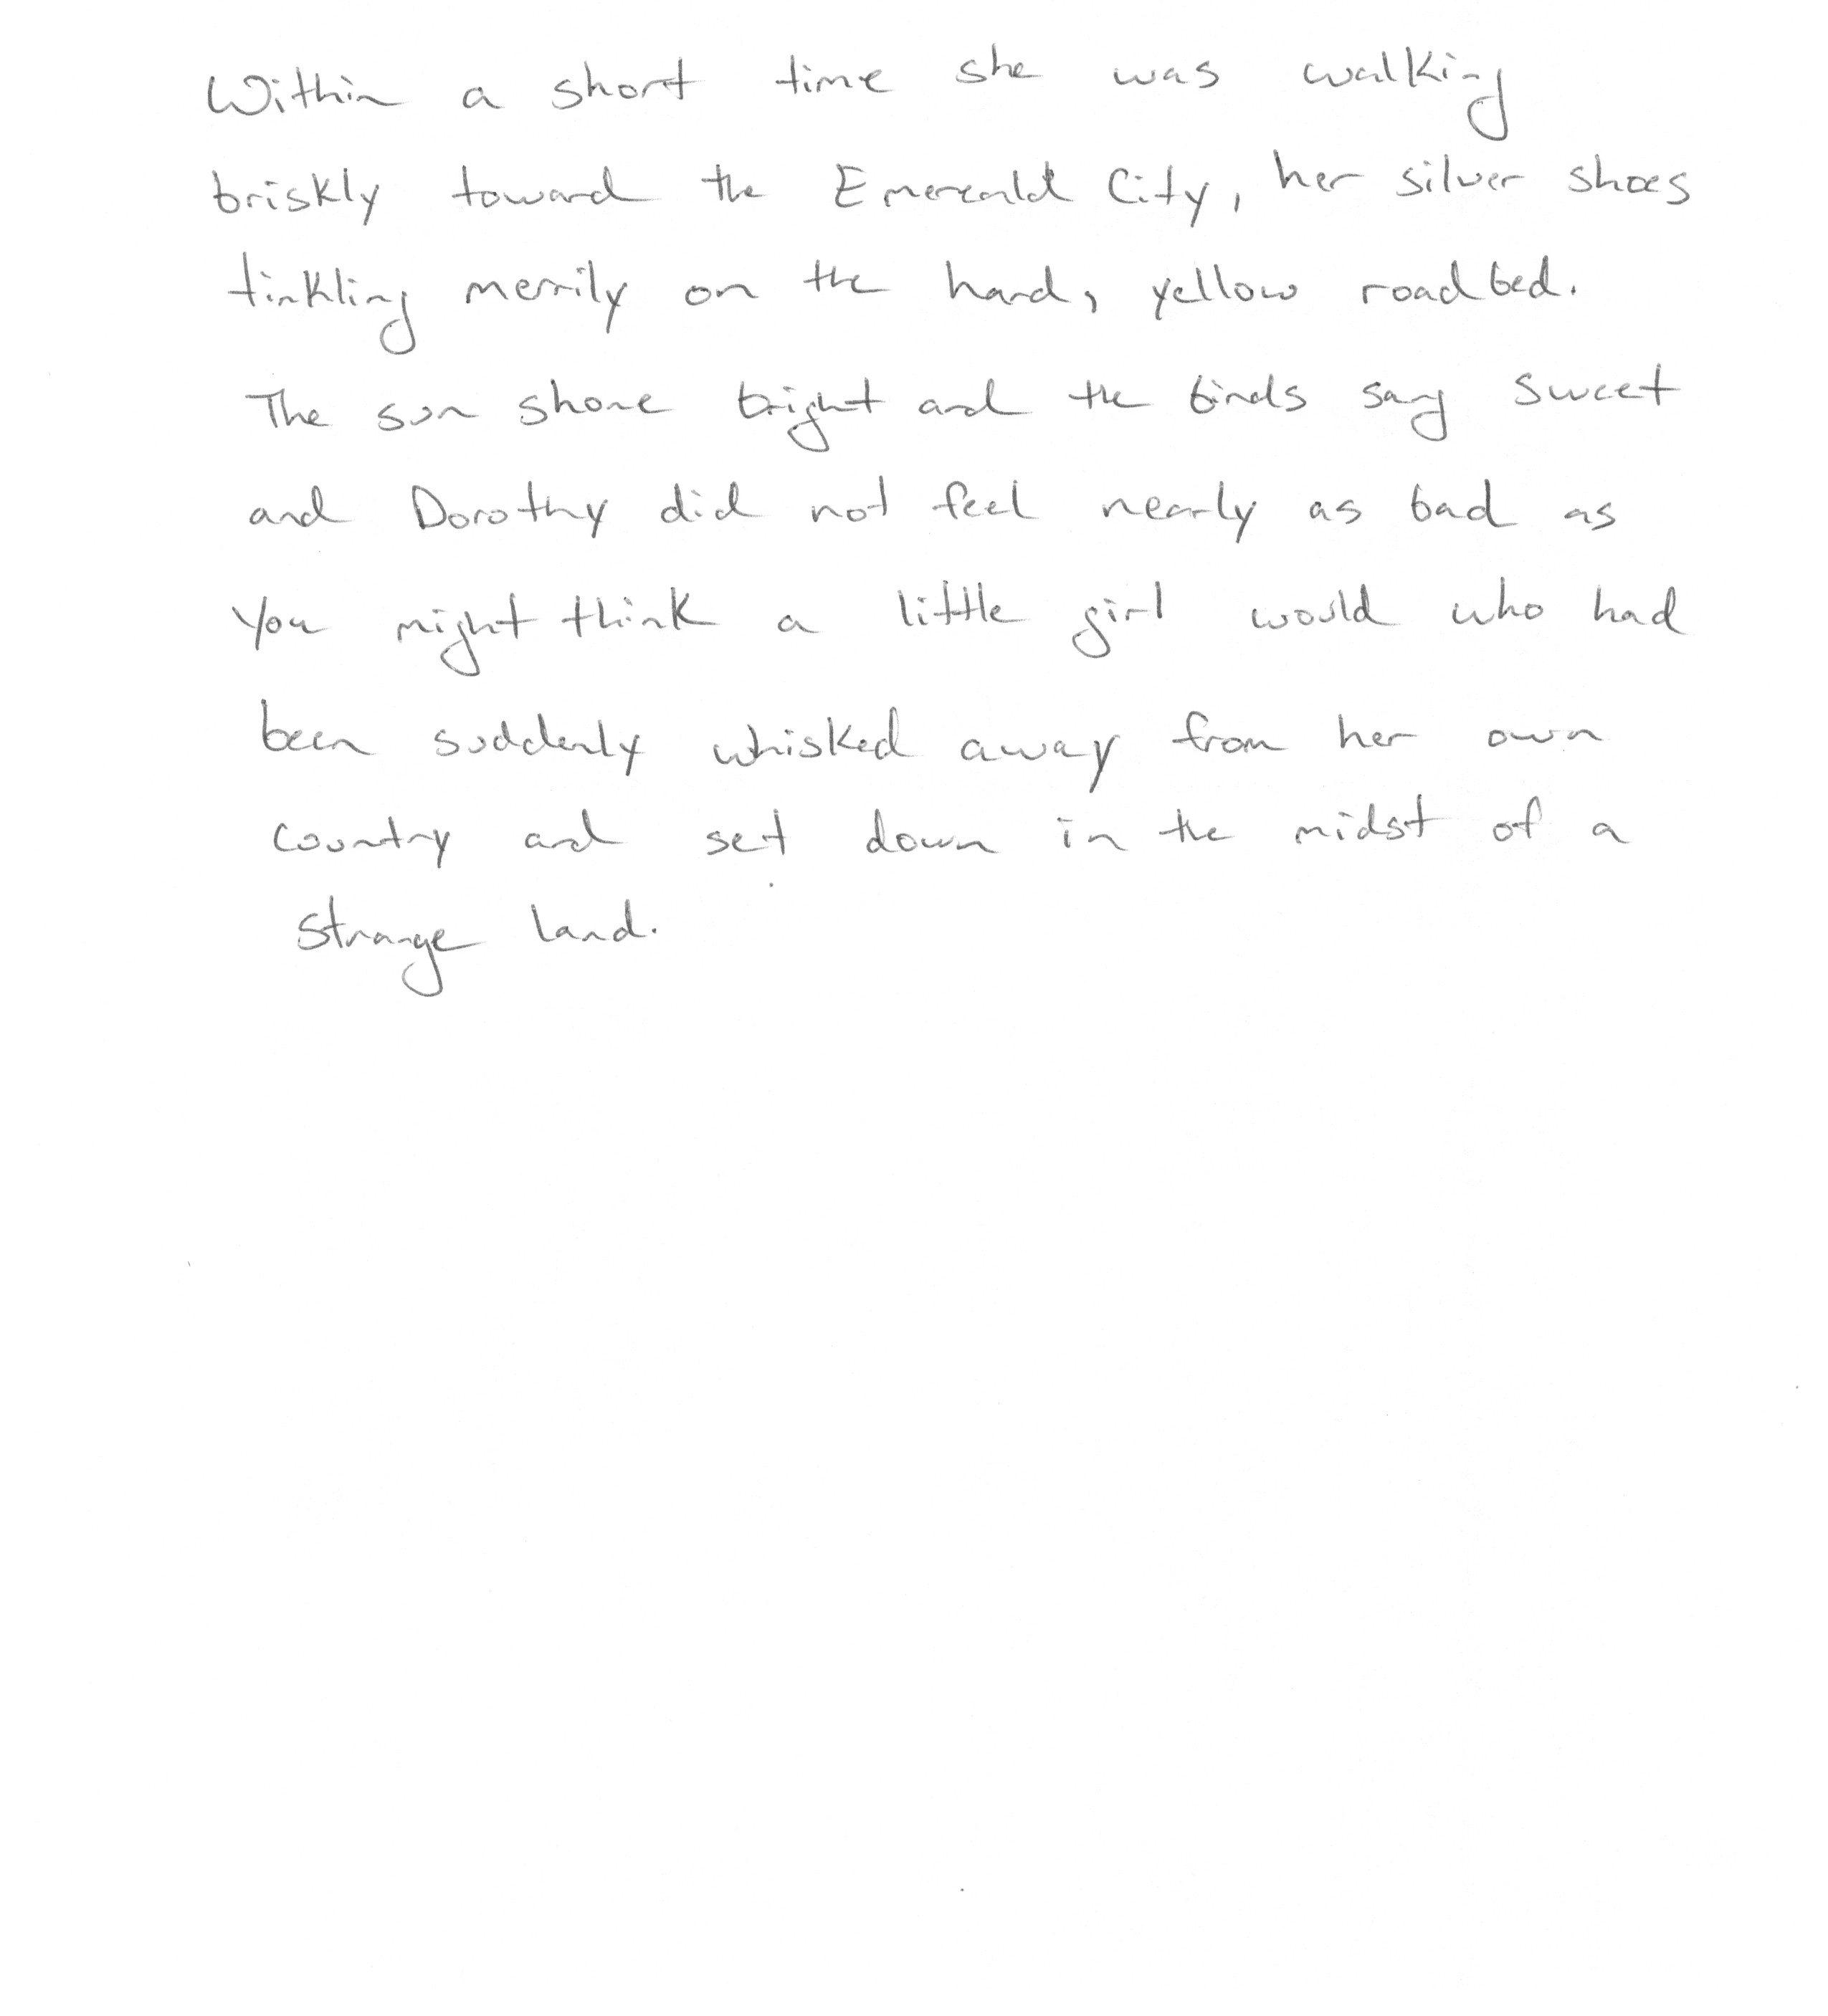 Within a short time she was walking
briskly toward the Emereald City, her silver shoes
tinkling merrily on the hard, yellow roadbed.
The sun shone bright and the birds sang sweet
and Dorothy did not feel nearly as bad as
you might think a little girl would who had
been suddenly whisked away from her own
country and set down in the midst of a
strange land.